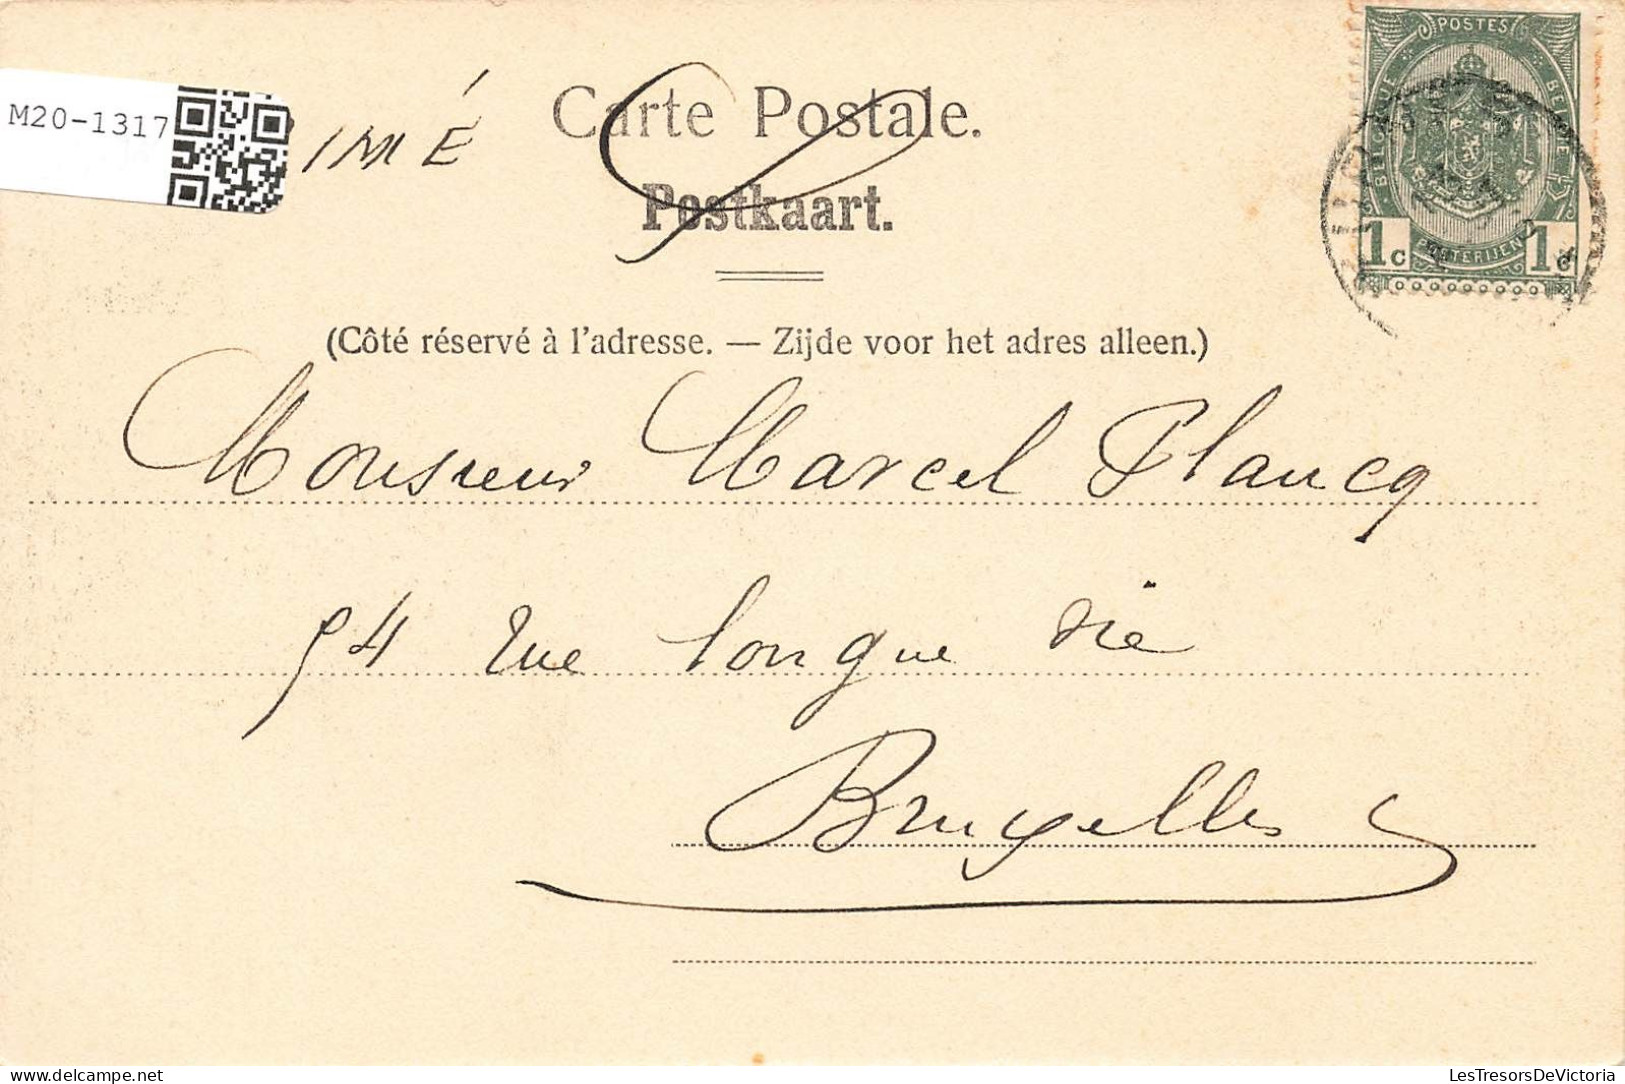 M20-1317
IMÉ
Carte Postale.
Postkaart.
POSTES
BELGIQUE
BELGIË
POSTERIJEN
1c 1c
(Côté réservé à l'adresse. — Zijde voor het adres alleen.)
Monsieur Marcel Plancq
54 rue longue vie
Bruxelles
LesTresorsDeVictoria